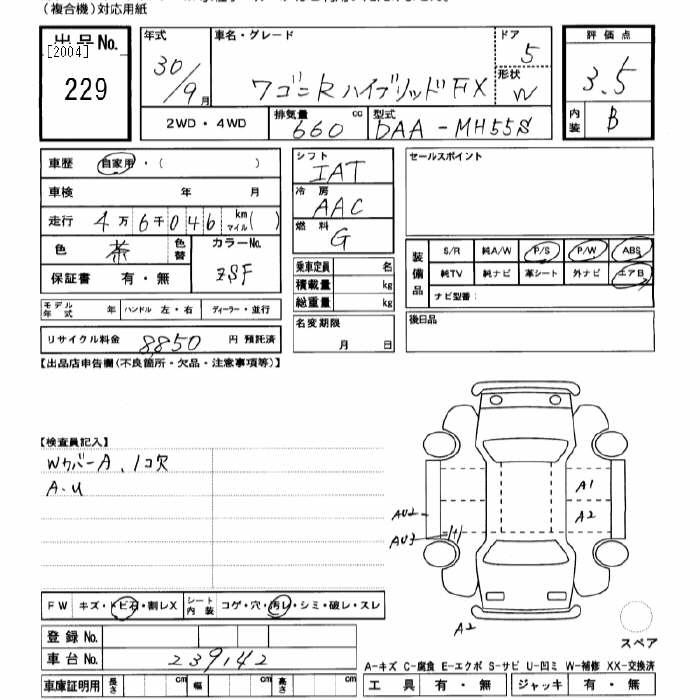 (複合機)対応用紙
出品No.
[2004]
229
年式
30/9月
車名・グレード
ワゴンR ハイブリッドFX
ドア
5
形状
W
評価点
3.5
内装
B
2WD・4WD
排気量
660 cc
型式
DAA-MH55S
車歴 自家用・( )
車検 年 月
走行 4万6千046 km マイル( )
色 茶 色替
カラーNo.
ZSF
保証書 有・無
モデル年式 年 ハンドル 左・右 ディーラー・並行
リサイクル料金 8,850 円 預託済
シフト
IAT
冷房
AAC
燃料
G
乗車定員 名
積載量 kg
総重量 kg
名変期限
月 日
セールスポイント
装備品
S/R 純A/W P/S P/W ABS
純TV 純ナビ 革シート 外ナビ エアB
ナビ型番:
後日品
【出品店申告欄(不良箇所・欠品・注意事項等)】
【検査員記入】
Wカバー A、1コ欠
A・U
A1
A2
AU2
AU3
A2
スペア
FW キズ・トビ石・割レX シート内装 コゲ・穴・汚レ・シミ・破レ・スレ
登録No.
車台No. 239142
車庫証明用 長さ cm 幅 cm 高さ cm
A-キズ C-腐食 E-エクボ S-サビ U-凹ミ W-補修 XX-交換済
工具 有・無 ジャッキ 有・無